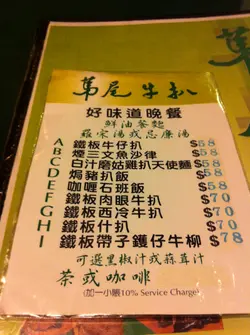 牛扒
好味道晚餐
鮮油餐麵
羅宋湯或忌廉湯
A 鐵板牛仔扒 $58
B 煙三文魚沙律 $58
C 白汁磨菇雞扒天使麵 $58
D 焗豬扒飯 $58
E 咖喱石班飯 $58
F 鐵板肉眼牛扒 $70
G 鐵板西冷牛扒 $70
H 鐵板什扒 $70
I 鐵板帶子鑊仔牛柳 $78
可選黑椒汁或蒜茸汁
茶或咖啡
(加一小賬10% Service Charge)